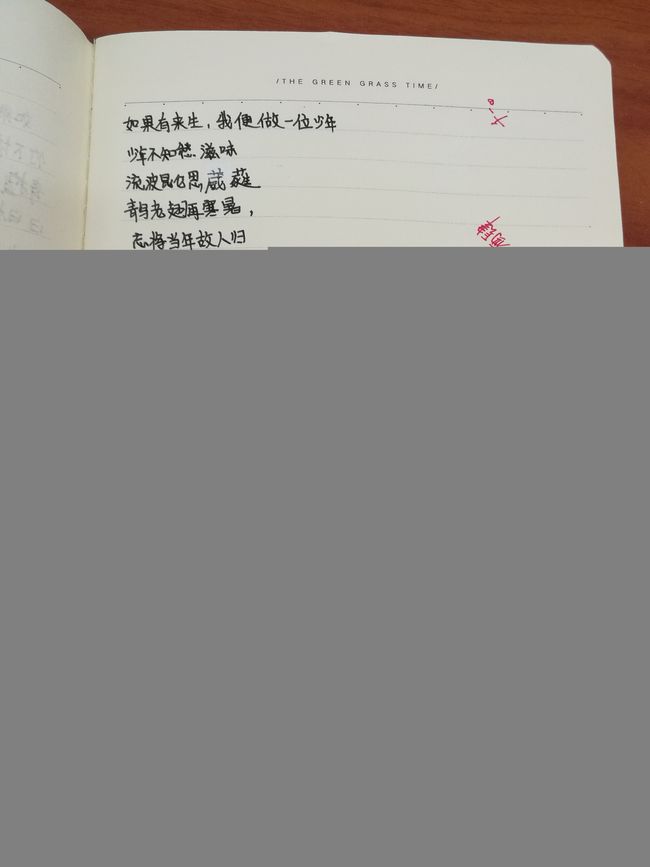 /THE GREEN GRASS TIME/
如果有来生，我便做一位少年
少年不知愁滋味
流波昆仑思葳蕤
再寒暑，
忘将当年故人归